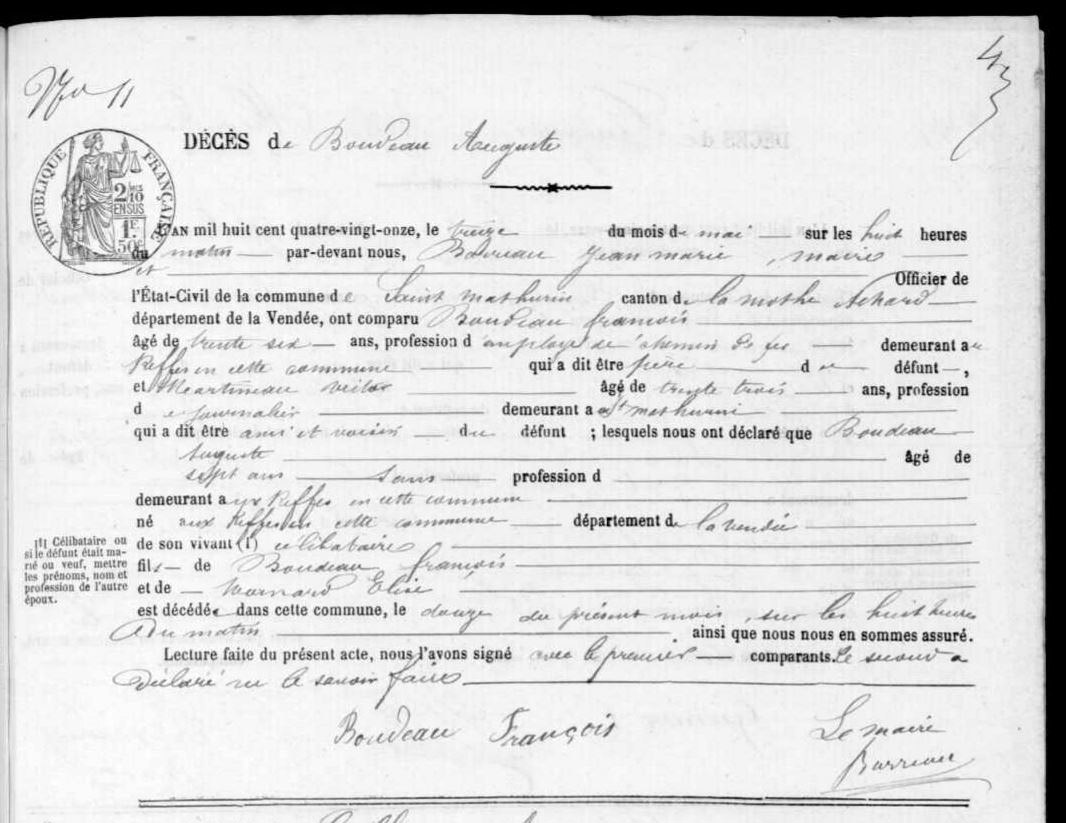 No 11
43
DÉCÈS de Boudeau Auguste
RÉPUBLIQUE FRANÇAISE
2/10 EN SUS
1F 50c
L'AN mil huit cent quatre-vingt-onze, le treize du mois de mai sur les huit heures
du matin par-devant nous, Jean marie, maire
et Officier de
l'État-Civil de la commune de Saint mathurin canton de la mothe Achard
département de la Vendée, ont comparu Boudeau françois
âgé de trente six ans, profession d'employé de chemin de fer demeurant au
en cette commune qui a dit être père du défunt,
et Martineau victor âgé de trente trois ans, profession
de journalier demeurant à St mathurin
qui a dit être ami et voisin du défunt ; lesquels nous ont déclaré que Boudeau
Auguste âgé de
sept ans sans profession d
demeurant aux en cette commune
né aux en cette commune département de la vendée
[1] Célibataire ou si le défunt était marié ou veuf, mettre les prénoms, nom et profession de l'autre époux.
de son vivant (1) célibataire
fils de Boudeau françois
et de Elise
est décédé dans cette commune, le douze du présent mois, sur les huit heures
du matin ainsi que nous nous en sommes assuré.
Lecture faite du présent acte, nous l'avons signé avec le premier comparants. Le second a
déclaré ne le savoir faire
Boudeau François
Le maire